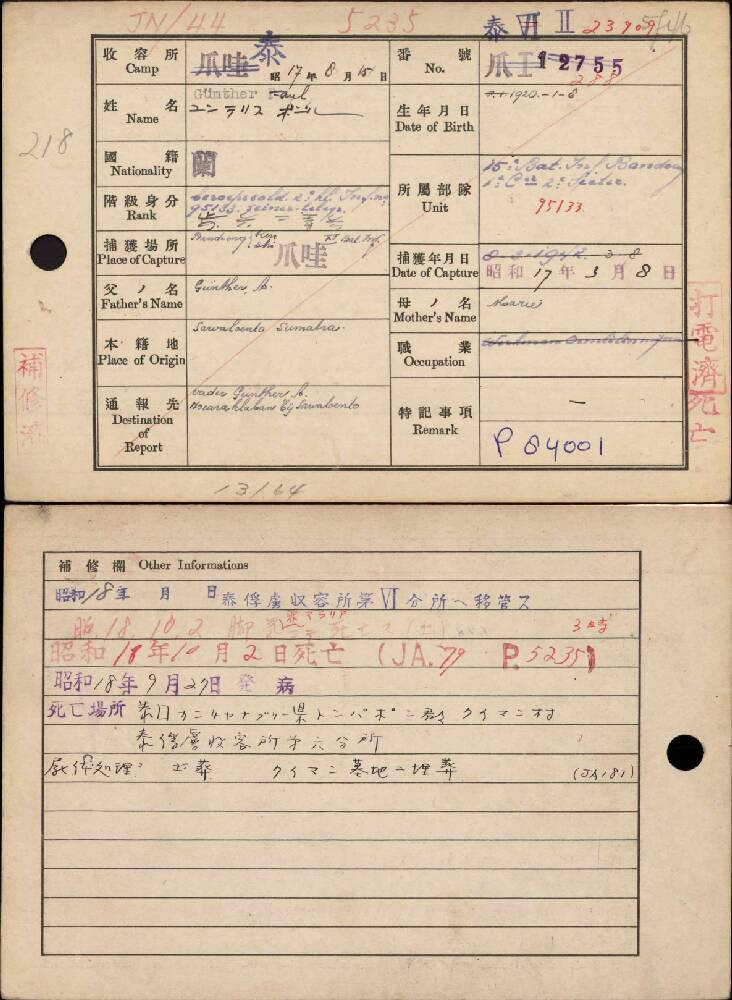 JN/44 5235 泰 VI II 23909
收容所 Camp 爪哇 泰 昭 17年8月15日
番號 No. 爪 I 12755
288
姓名 Name Günther Paul
生年月日 Date of Birth 1920-1-6
218
國籍 Nationality 蘭
階級身分 Rank
95133
所屬部隊 Unit 15e Bat. Inf Bandoeng
1e Cie 2e Sectie.
95133
捕獲場所 Place of Capture Bandoeng 爪哇
捕獲年月日 Date of Capture 8-3-1942 3-8
昭和17年3月8日
父ノ名 Father's Name Günther, A.
母ノ名 Mother's Name Marie
本籍地 Place of Origin Sawaloento Sumatra.
職業 Occupation
通報先 Destination of Report vader Günther A.
Moearakalaban bij Sawaloento
特記事項 Remark —
P 84001
補修済
打電濟
死亡
13/64
補修欄 Other Informations
昭和18年 月 日 泰俘虜収容所第VI分所ヘ移管ス
昭 18 10 2 脚気 マラリア 死亡ス
昭和18年10月2日死亡 (JA.79 P.5235)
昭和18年9月27日 発病
死亡場所 泰国カンチャナブリー県トンパポン郡クイマン村
泰俘虜収容所第六分所
屍体処理 土葬 クイマン墓地ニ埋葬 (JA181)